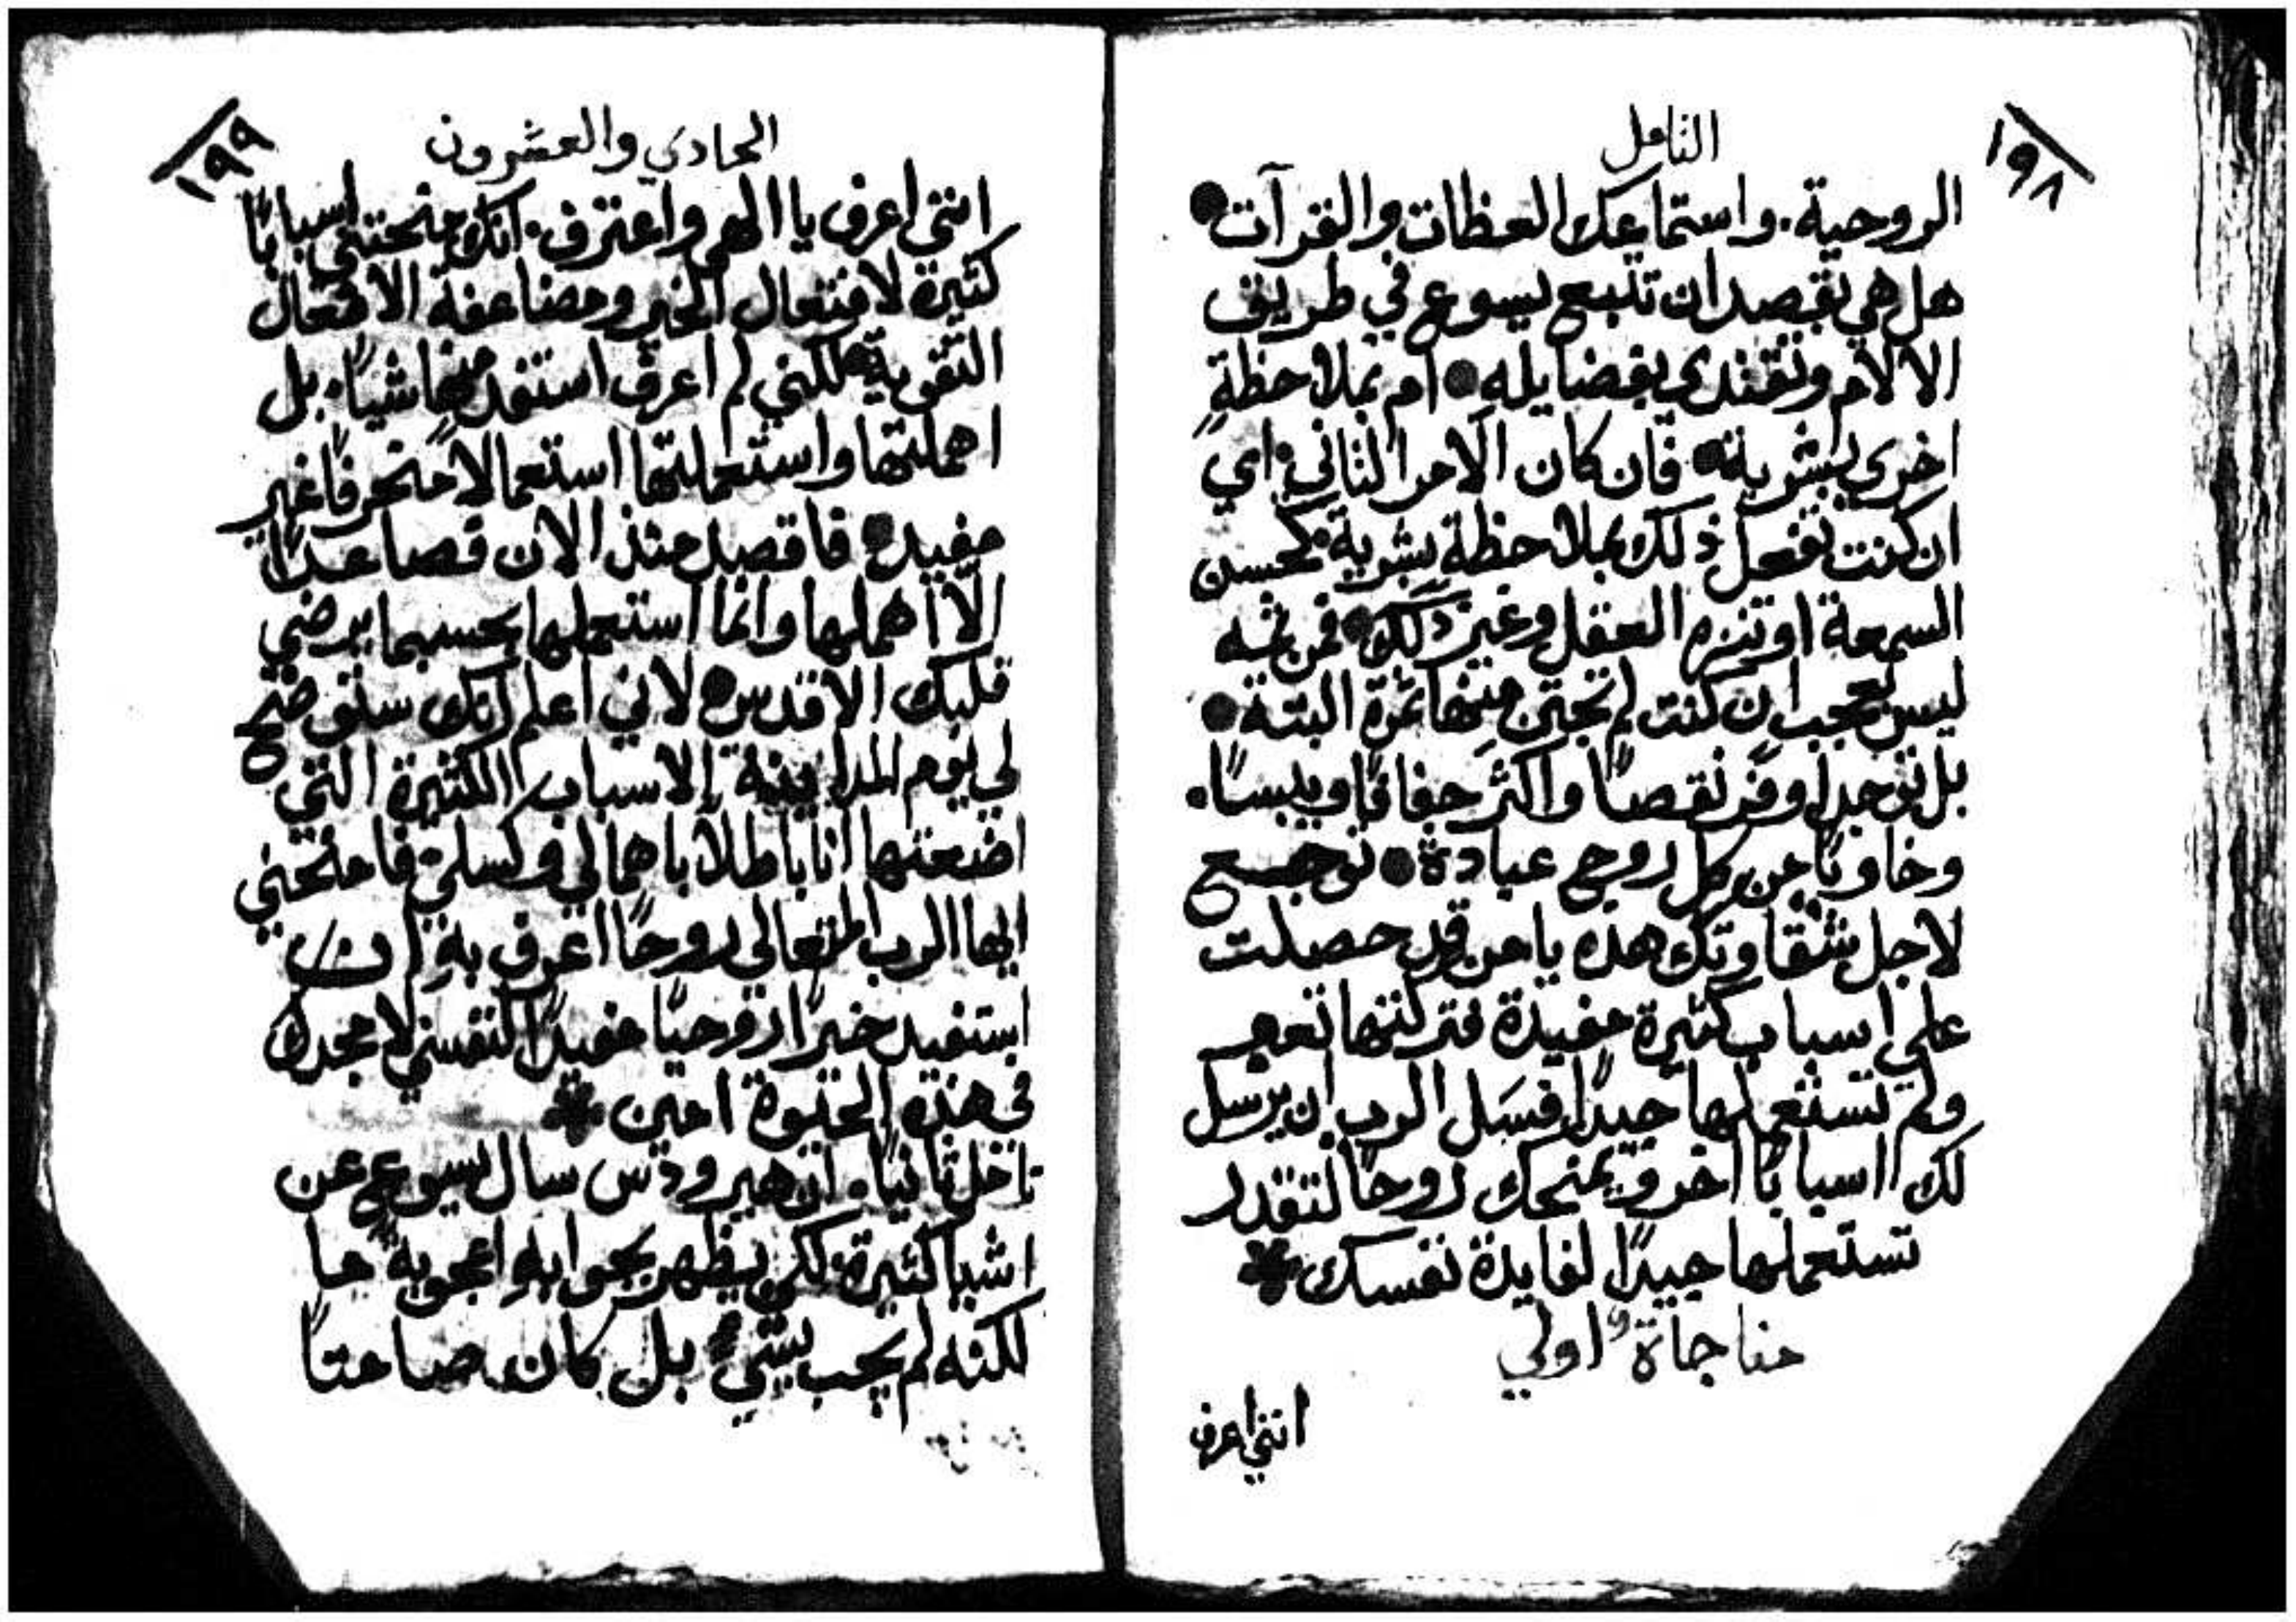 ١٩٨
التامل
الروحية. واستماعك العظات والقرآت
هل هي بقصد ان تتبع يسوع في طريق
الالام وتقتدي بفضايله ام بملاحظةٍ
اخري بشرية فان كان الامر الثاني اي
ان كنت تفعل ذلك بملاحظة بشرية كحسن
السمعة او تنزه العقل وغير ذلك فمن ثمه
ليس بعجب ان كنت لم تجتن منها ثمرة البتة
بل توجد اوفر نقصًا واكثر جفافًا ويبسًا.
وخاويًا من كل روح عبادة توجع
لاجل شقاوتك هذه يا من قد حصلت
علي اسباب كثيرة مفيدة فتركتها تعبر
ولم تستعملها جيدًا فسَل الرب ان يرسل
لك اسبابًا اخر ويمنحك روحًا لتقدر
تستعملها جيدًا لفايدة نفسك
مناجاة اولي
انني اعرف
١٩٩
الحادي والعشرون
انني اعرف يا الهي واعترف. انك منحتني اسبابًا
كثيرة لافتعال الخير ومضاعفة الافعال
التقوية لكنني لم اعرف استفد منها شيًا. بل
اهملتها واستعملتها استعمالًا منحرفًا غير
مفيد فاقصد منذ الان فصاعدًا
الّا اهملها وانما استعملها بحسبما يرضي
قلبك الاقدس لاني اعلم انك ستوضح
لي يوم المداينة الاسباب الكثيرة التي
اضعتها انا باطلًا باهمالي وكسلي فامنحني
ايها الرب المتعالي روحًا اعرف به ان
استفيد خيرًا روحيًا مفيدًا لنفسي لامجدك
في هذه الحيوة امين
تامل ثانيًا. ان هيرودس سال يسوع عن
اشيا كثيرة لكي يظهر بجوابه اعجوبة ما
لكنه لم يجب بشيء بل كان صامتًا